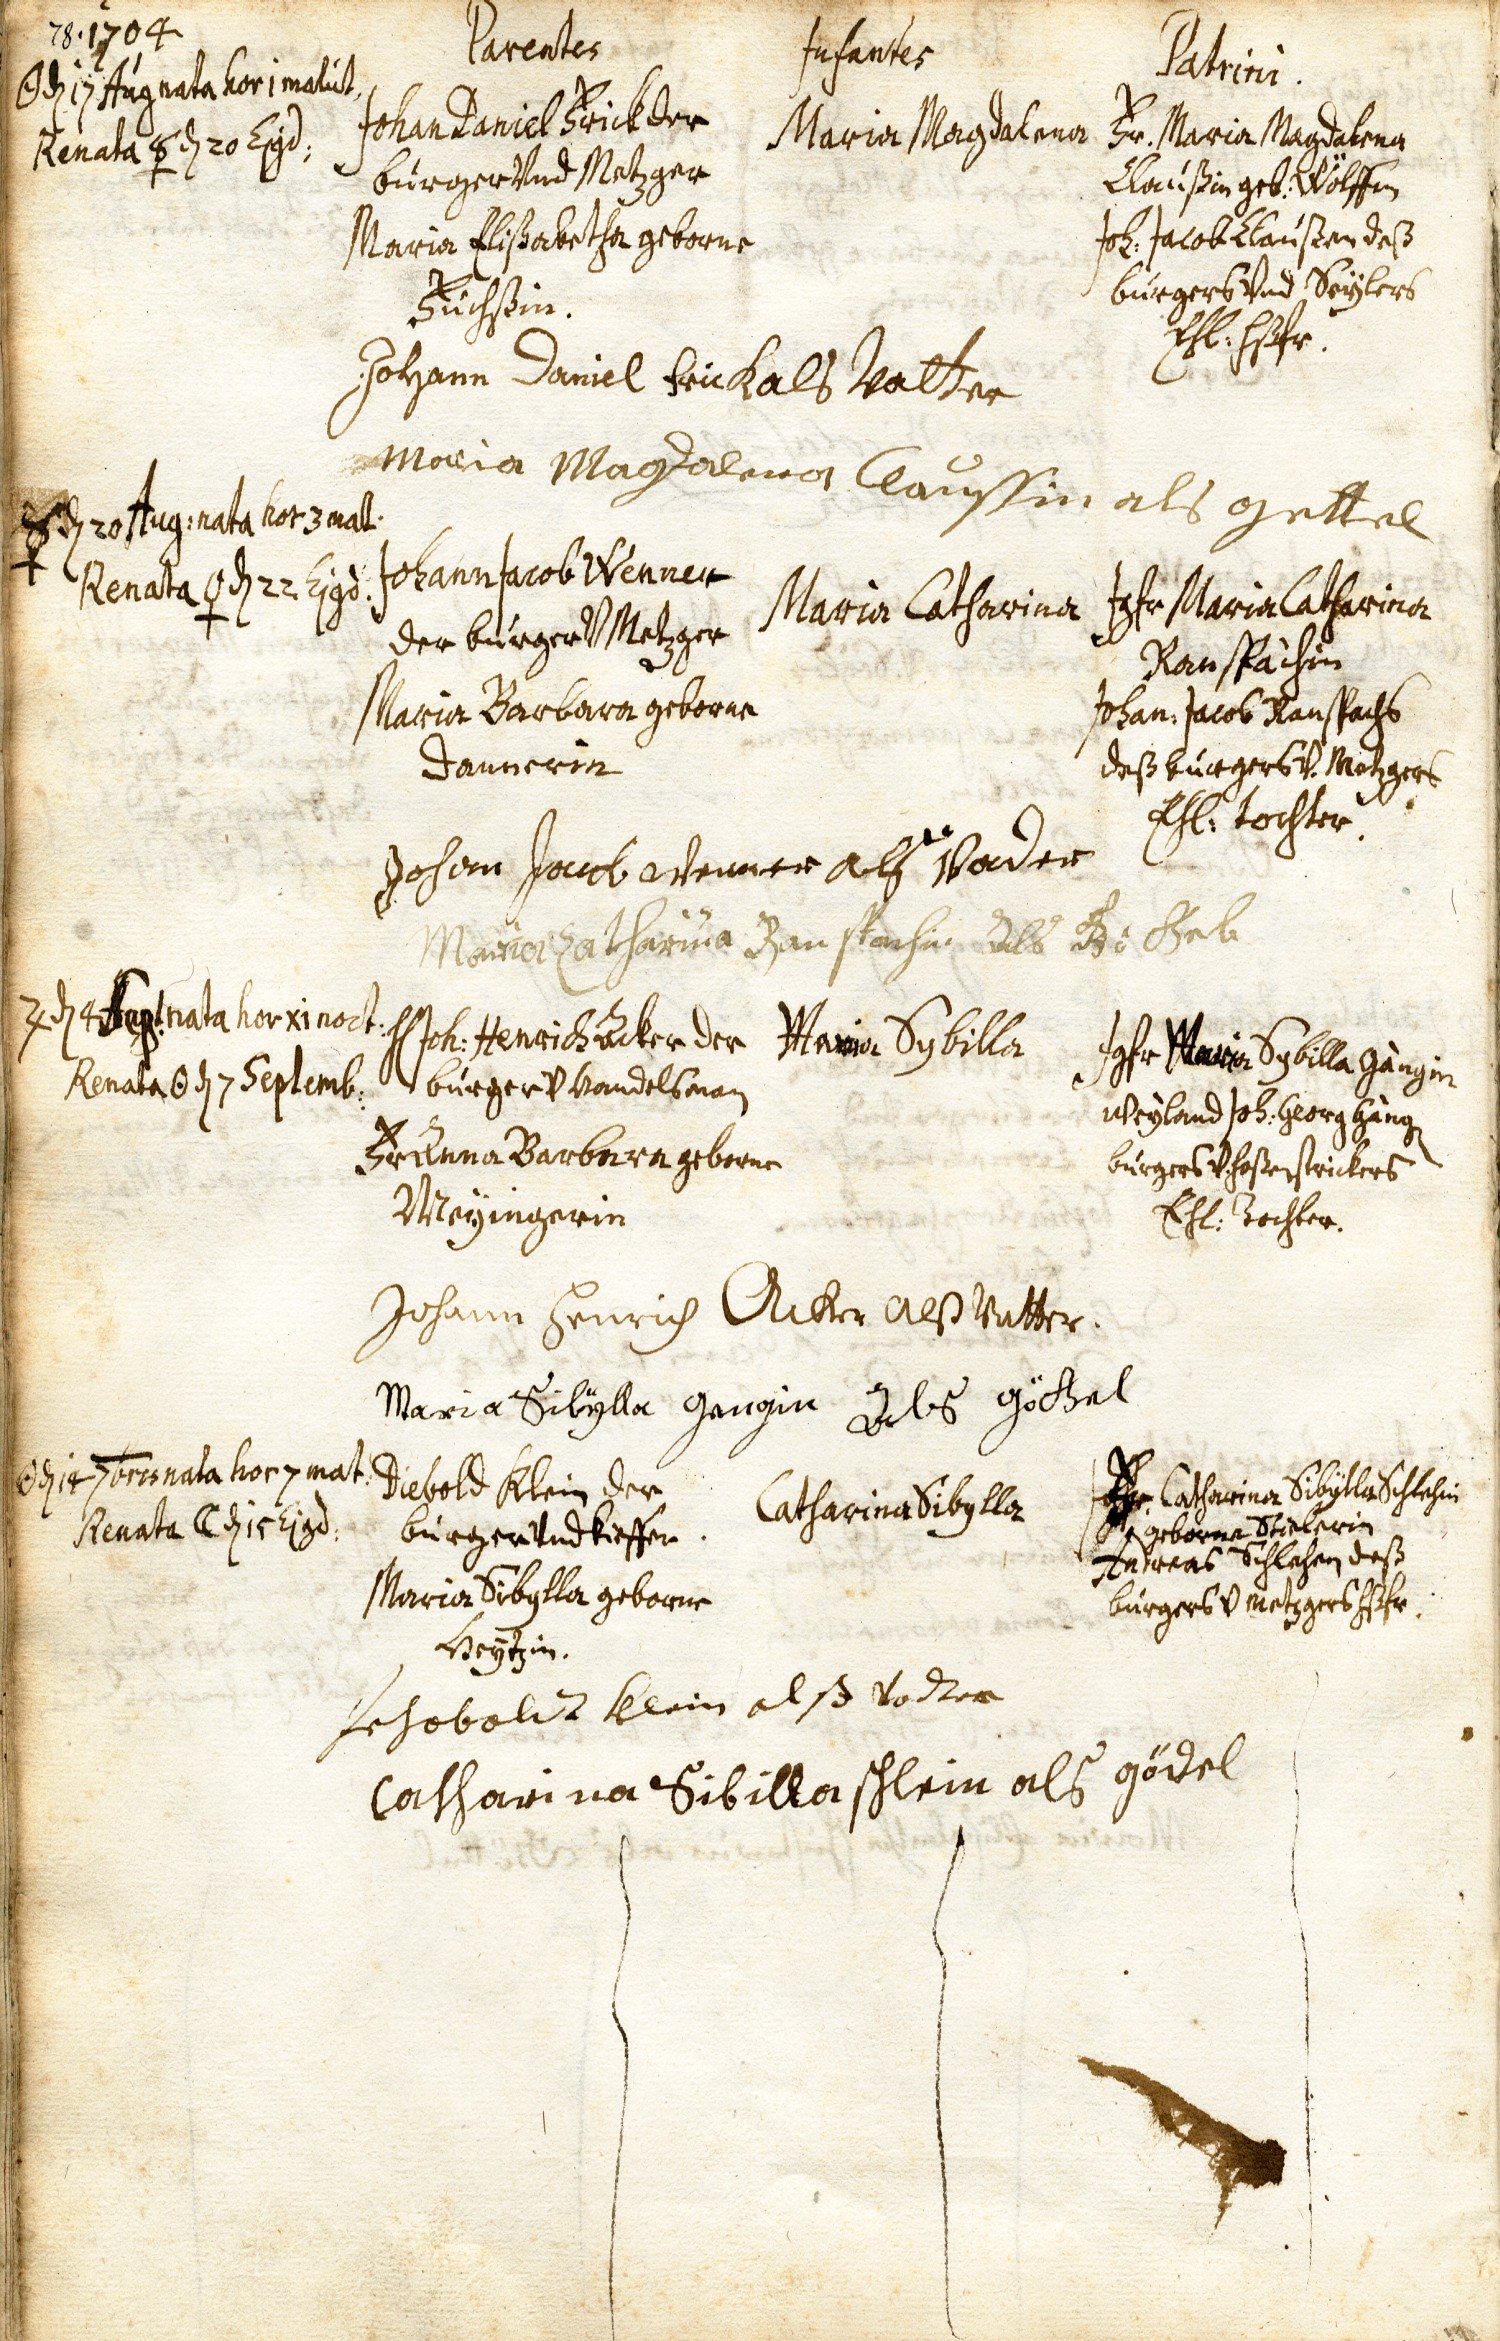 78. 1704
Parentes
Infantes
Patrini.
☉ d 17 Aug nata hor 1 matut.
Renata ☿ d 20 Ejsd:
Johan Daniel Frick der
burger Vnd Metzger
Maria Elißabetha geborne
Füchßin.
Maria Magdalena
Fr. Maria Magdalena
Claußin geb: Wölffin
Joh: Jacob Claußen deß
burgers Vnd Seÿlers
Ehl: hßfr.
Johann Daniel frick als Vatter
Maria Magdalena Claussin als gettel
☿ d 20 Aug: nata hor 3 mat.
Renata ♀ d 22 Ejsd:
Johann Jacob Wenner
der burger V Metzger
Maria Barbara geborne
Dannerin
Maria Catharina
Jgfr Maria Catharina
Ranspächin
Johan: Jacob Ranspachs
deß burgers V. Metzgers
Ehl: tochter.
Johan Jacob Wenner alß Vader
Maria Catharina Ranspachin Als
♃ d 4 nata hor xi noct.
Renata ☉ d 7 Septemb:
H Joh: Henrich Acker der
burger V handelsman
Fr Anna Barbara geborne
Meÿingerin
Maria Sybilla
Jgfr Maria Sybilla Gängin
weÿland Joh: Georg Gäng
burgers V. hoßenstrickers
Ehl: Tochter.
Johann Henrich Acker alß Vatter.
Maria Sibÿlla Gengin Als göthel
☉ d 14 7bris nata hor 7 mat.
Renata ☾ d 15 Ejsd:
Diebold Klein der
burger Vnd kieffer.
Maria Sibylla geborne
heÿtzin.
Catharina Sibylla
Fr. Catharina Sibÿlla Schlehin
geborne Stielerin
Andreas Schlehen deß
burgers V metzgers hßfr.
klein alß Vodter
Catharina Sibilla schlein als gödel